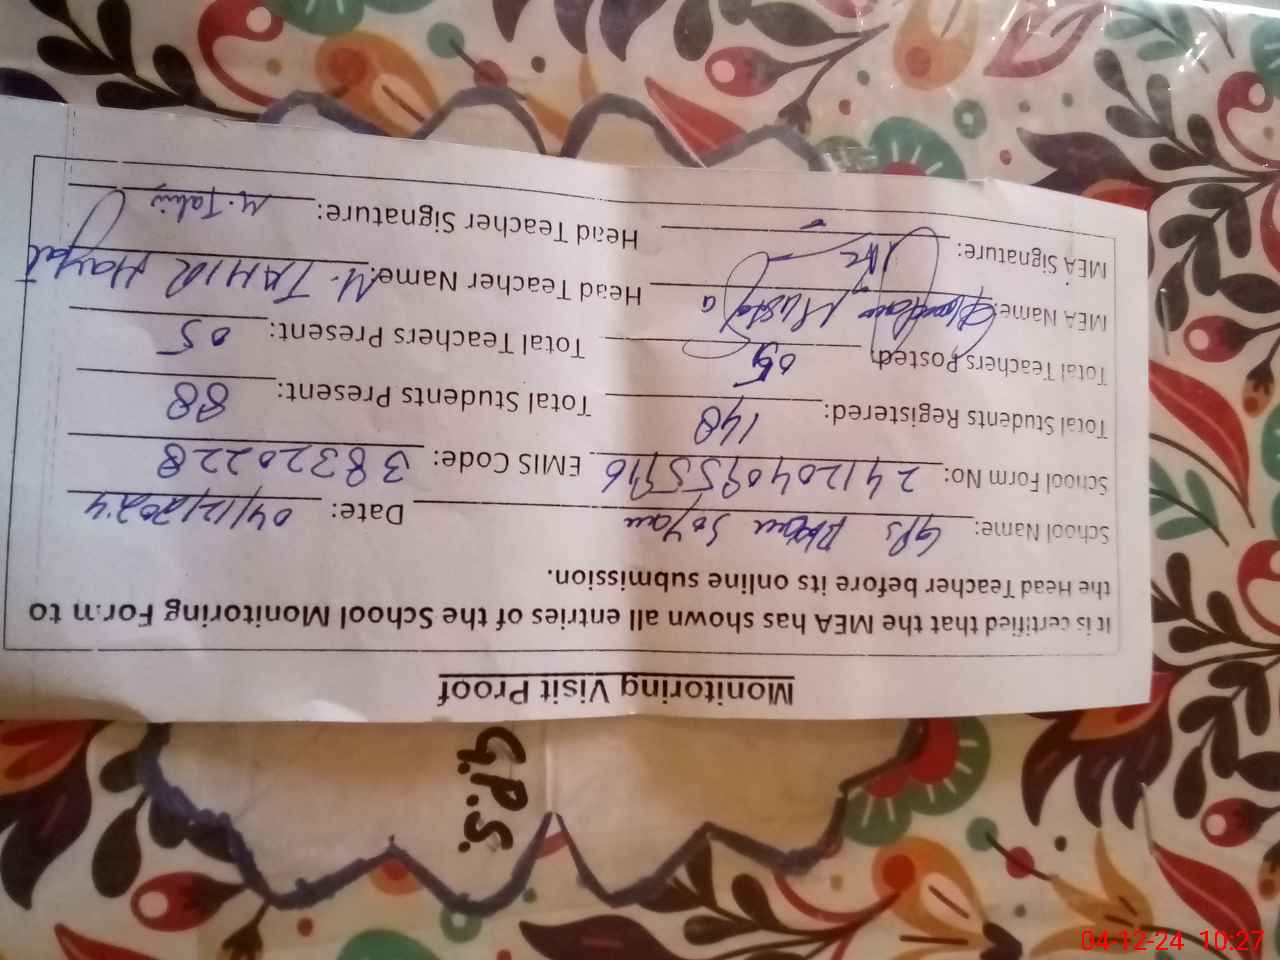 Monitoring Visit Proof
It is certified that the MEA has shown all entries of the School Monitoring Form to
the Head Teacher before its online submission.
School Name: GPS Soyam Date: 04/12/2024
School Form No: EMIS Code: 38320228
Total Students Registered: 148 Total Students Present: 88
Total Teachers Posted: 05 Total Teachers Present: 05
MEA Name: Mustafa Head Teacher Name: M. TAHIR Hayat
MEA Signature: Head Teacher Signature: M. Tahir
G.P.S.
04-12-24 10:27